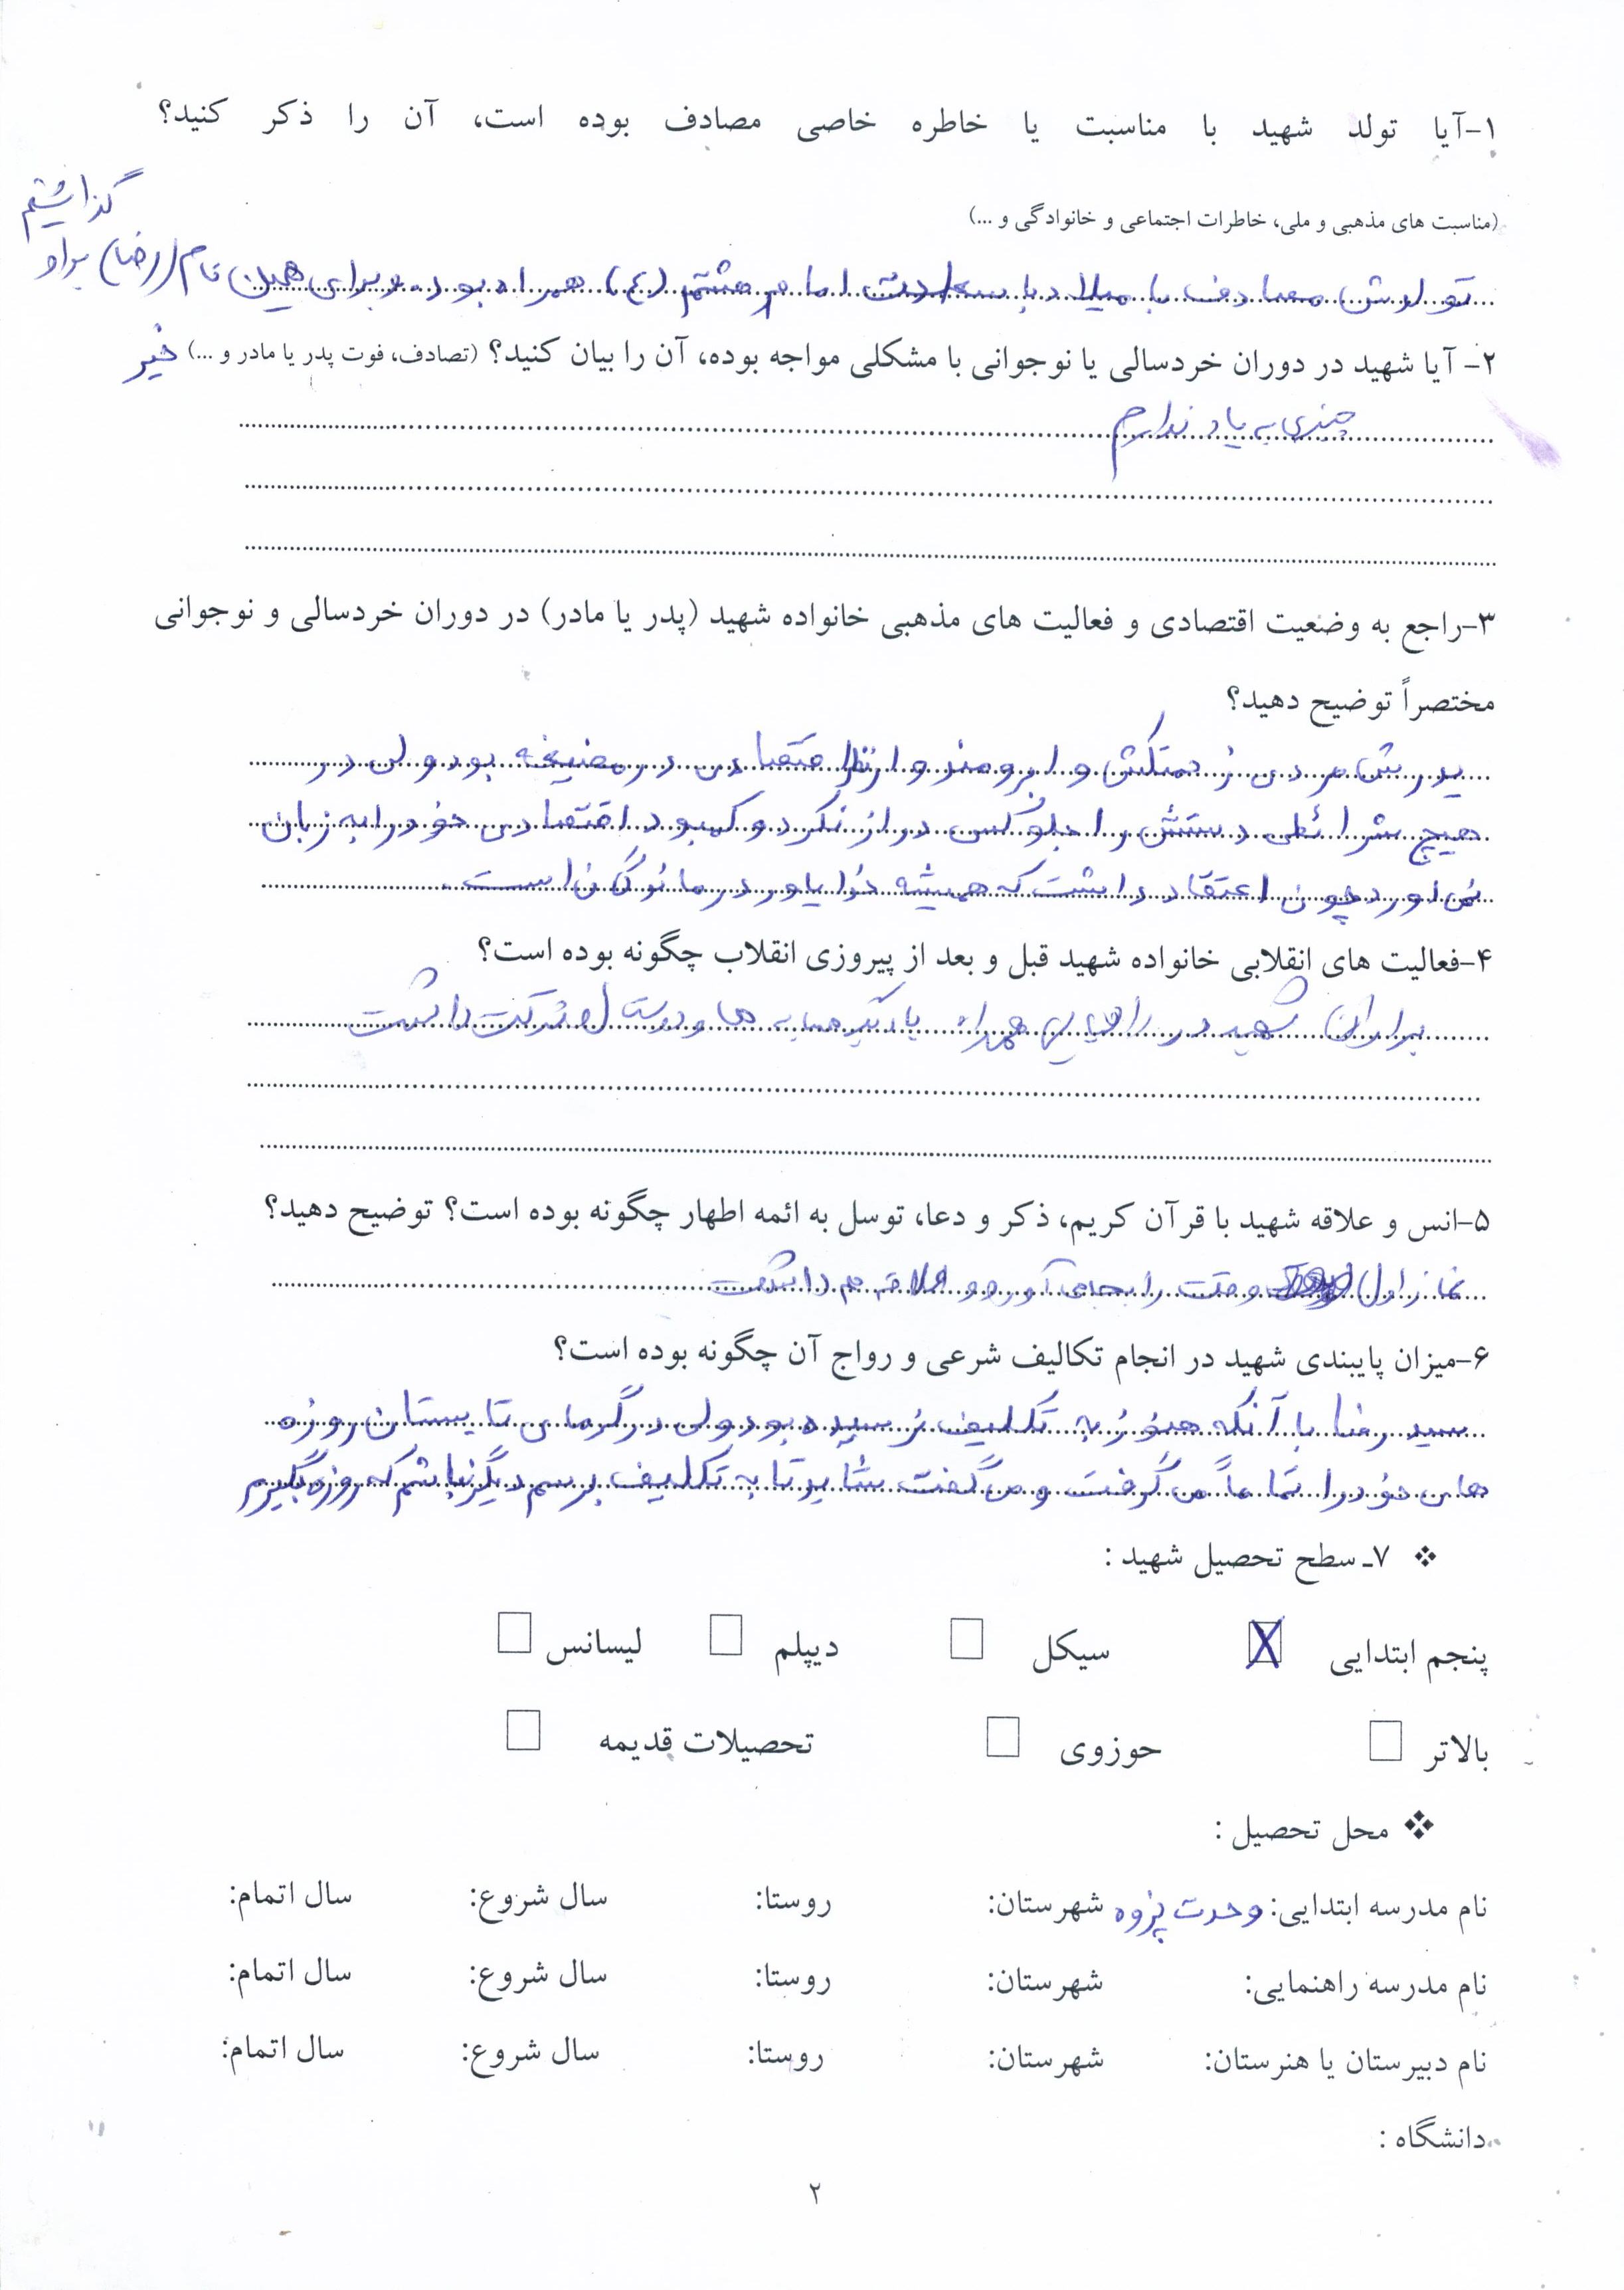 ۱-آیا تولد شهید با مناسبت یا خاطره خاصی مصادف بوده است، آن را ذکر کنید؟
(مناسبت های مذهبی و ملی، خاطرات اجتماعی و خانوادگی و ...)
تولدش مصادف با میلاد با سعادت امام هشتم (ع) همراه بود. و برای همین نام (رضا) براو
گذاشتم
۲- آیا شهید در دوران خردسالی یا نوجوانی با مشکلی مواجه بوده، آن را بیان کنید؟ (تصادف، فوت پدر یا مادر و ...) خیر
چیزی به یاد ندارم
۳-راجع به وضعیت اقتصادی و فعالیت های مذهبی خانواده شهید (پدر یا مادر) در دوران خردسالی و نوجوانی
مختصراً توضیح دهید؟
پدرش مردی زحمتکش و ابرومند و از نظر اقتصادی در مضیغه بود ولی در
هیچ شرائطی دستش را جلو کسی دراز نکرد و کمبود اقتصادی خود را به زبان
نمی اورد چون اعتقاد داشت که همیشه خدا یاور درماندگان است.
۴-فعالیت های انقلابی خانواده شهید قبل و بعد از پیروزی انقلاب چگونه بوده است؟
برادران شهید در راهپیمایی همراه با دیگر همسایه ها و دوستان شرکت داشت
۵-انس و علاقه شهید با قرآن کریم، ذکر و دعا، توسل به ائمه اطهار چگونه بوده است؟ توضیح دهید؟
نماز اول وقت را بجای آورد و علاقه هم داشت
۶-میزان پایبندی شهید در انجام تکالیف شرعی و رواج آن چگونه بوده است؟
سید رضا با آنکه هنوز به تکلیف نرسیده بود ولی در گرمای تابستان روزه
های خود را تماماً می گرفت و می گفت شاید تا به تکلیف برسم دیگر نباشم که روزه بگیرم
❖ ۷ـ سطح تحصیل شهید :
پنجم ابتدایی X سیکل دیپلم لیسانس
بالاتر حوزوی تحصیلات قدیمه
❖ محل تحصیل :
نام مدرسه ابتدایی: وحدت پزوه شهرستان: روستا: سال شروع: سال اتمام:
نام مدرسه راهنمایی: شهرستان: روستا: سال شروع: سال اتمام:
نام دبیرستان یا هنرستان: شهرستان: روستا: سال شروع: سال اتمام:
دانشگاه :
۲